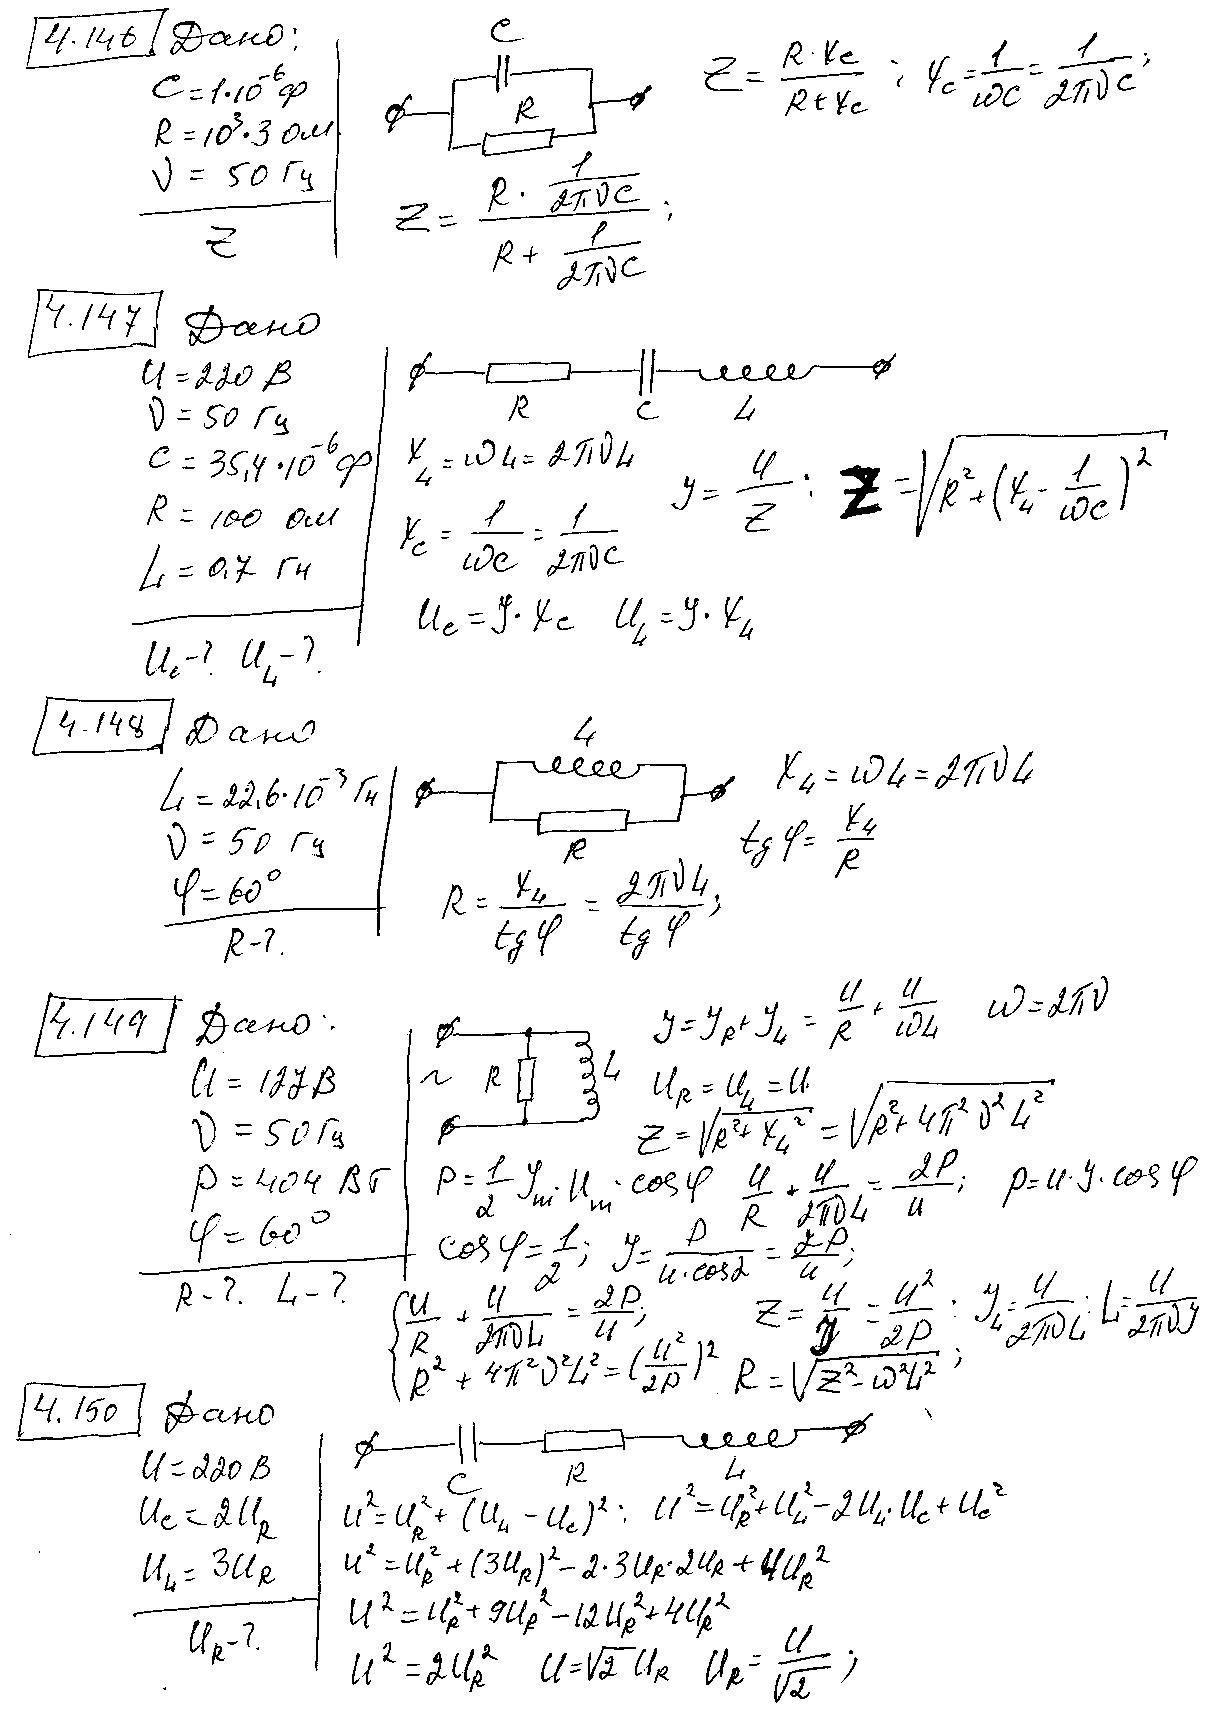 4.146 Дано:
C = 1·10⁻⁶ ф
R = 10³·3 Ом
ν = 50 Гц
Z
C
R
Z = R·Xc / (R+Xc) ; Xc = 1/ωC = 1/2πνC ;
Z = (R · 1/2πνC) / (R + 1/2πνC) ;
4.147 Дано
U = 220 В
ν = 50 Гц
C = 35,4·10⁻⁶ ф
R = 100 Ом
L = 0,7 Гн
Uc-? U_L-?.
R C L
X_L = ωL = 2πνL
Xc = 1/ωC = 1/2πνC
Y = U/Z ; Z = √(R² + (X_L - 1/ωC)²)
Uc = Y·Xc U_L = Y·X_L
4.148 Дано
L = 22,6·10⁻³ Гн
ν = 50 Гц
φ = 60°
R-?.
L
R
X_L = ωL = 2πνL
tg φ = X_L/R
R = X_L/tg φ = 2πνL/tg φ ;
4.149 Дано:
U = 127 В
ν = 50 Гц
P = 404 Вт
φ = 60°
R-?. L-?.
~ R L
Y = Y_R + Y_L = U/R + U/ωL ω = 2πν
U_R = U_L = U.
Z = √(R² + X_L²) = √(R² + 4π²ν²L²)
P = 1/2 Ym·Um·cos φ U/R + U/2πνL = 2P/U ; P = U·Y·cos φ
cos φ = 1/2 ; Y = P/(U·cos α) = 2P/U ;
{ U/R + U/2πνL = 2P/U ;
R² + 4π²ν²L² = (U²/2P)²
Z = U/Y = U²/2P ; Y_L = U/2πνL ; L = U/2πνY
R = √(Z² - ω²L²) ;
4.150 Дано
U = 220 В
Uc = 2U_R
U_L = 3U_R
U_R-?.
C R L
U² = U_R² + (U_L - Uc)² ; U² = U_R² + U_L² - 2U_L·Uc + Uc²
U² = U_R² + (3U_R)² - 2·3U_R·2U_R + 4U_R²
U² = U_R² + 9U_R² - 12U_R² + 4U_R²
U² = 2U_R² U = √2 U_R U_R = U/√2 ;